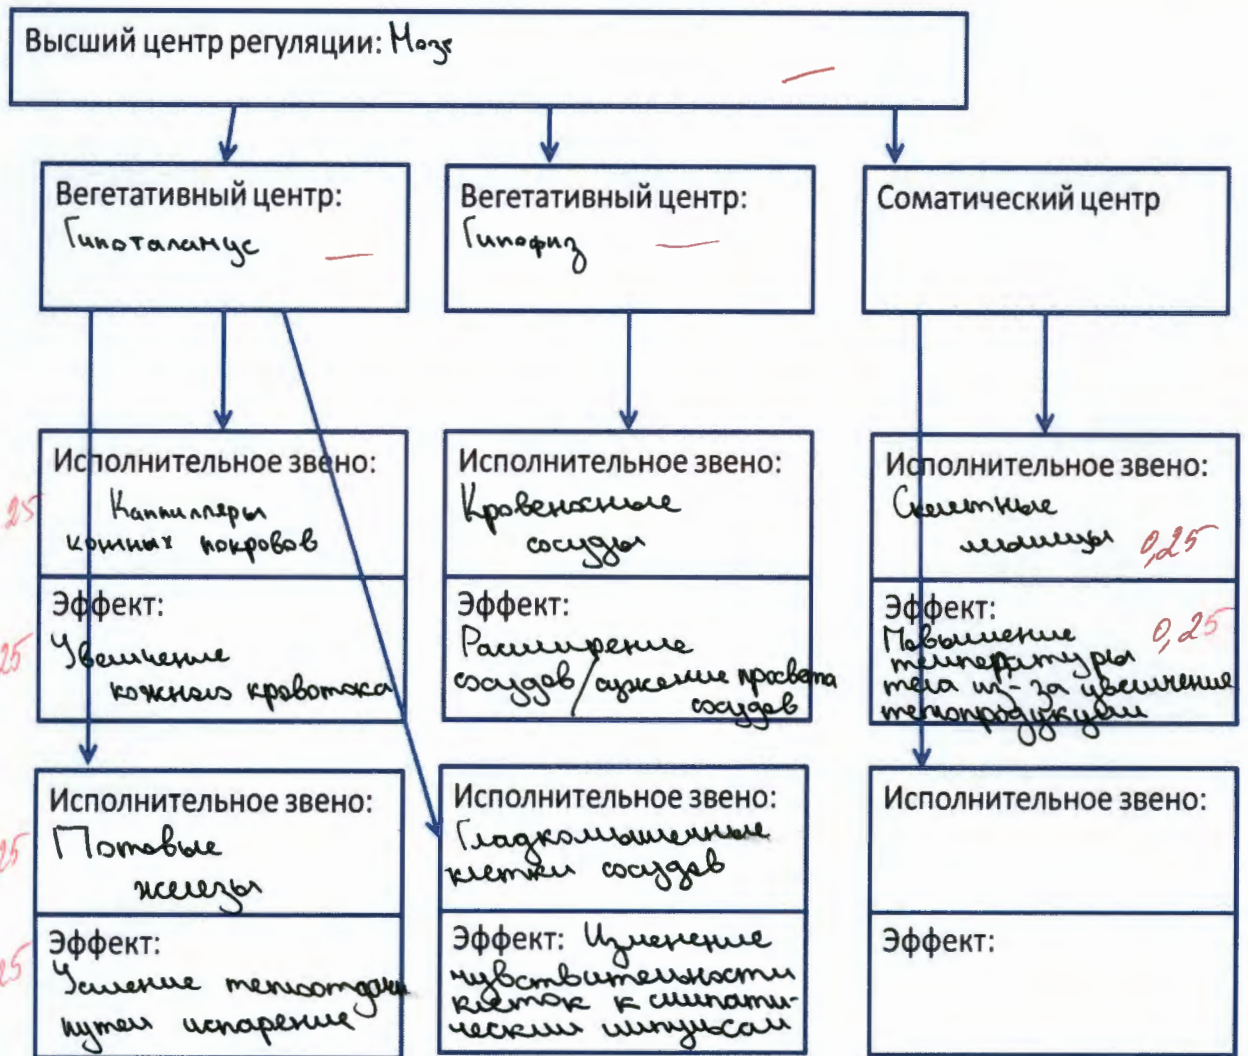 Высший центр регуляции: Мозг
Вегетативный центр:
Гипоталамус
Вегетативный центр:
Гипофиз
Соматический центр
Исполнительное звено:
Каппилляры
кожных покровов
25
Эффект:
Увеличение
кожного кровотока
25
Исполнительное звено:
Кровеносные
сосуды
Эффект:
Расширение
сосудов/сужение просвета
сосудов
Исполнительное звено:
Скелетные
мышцы 0,25
Эффект:
Повышение 0,25
температуры
тела из-за увеличение
теплопродукции
Исполнительное звено:
Потовые
железы
25
Эффект:
Усиление теплоотдачи
путем испарение
25
Исполнительное звено:
Гладкомышечные
клетки сосудов
Эффект: Изменение
чувствительности
клеток к симпати-
ческим импульсам
Исполнительное звено:
Эффект: